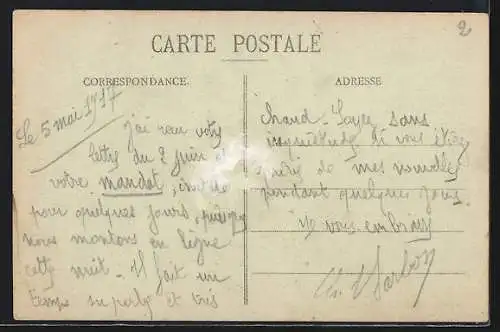 2
CARTE POSTALE
CORRESPONDANCE.
ADRESSE
Le 5 mai 1917
J'ai reçu votre
lettre du 2 juin et
votre mandat,
pour quelques jours,
nous montons en ligne
cette nuit. Il fait un
temps superbe et très
chaud. Soyez sans
inquiétude si vous étiez
privé de mes nouvelles
pendant quelques jours.
Je vous embrasse
Ch.